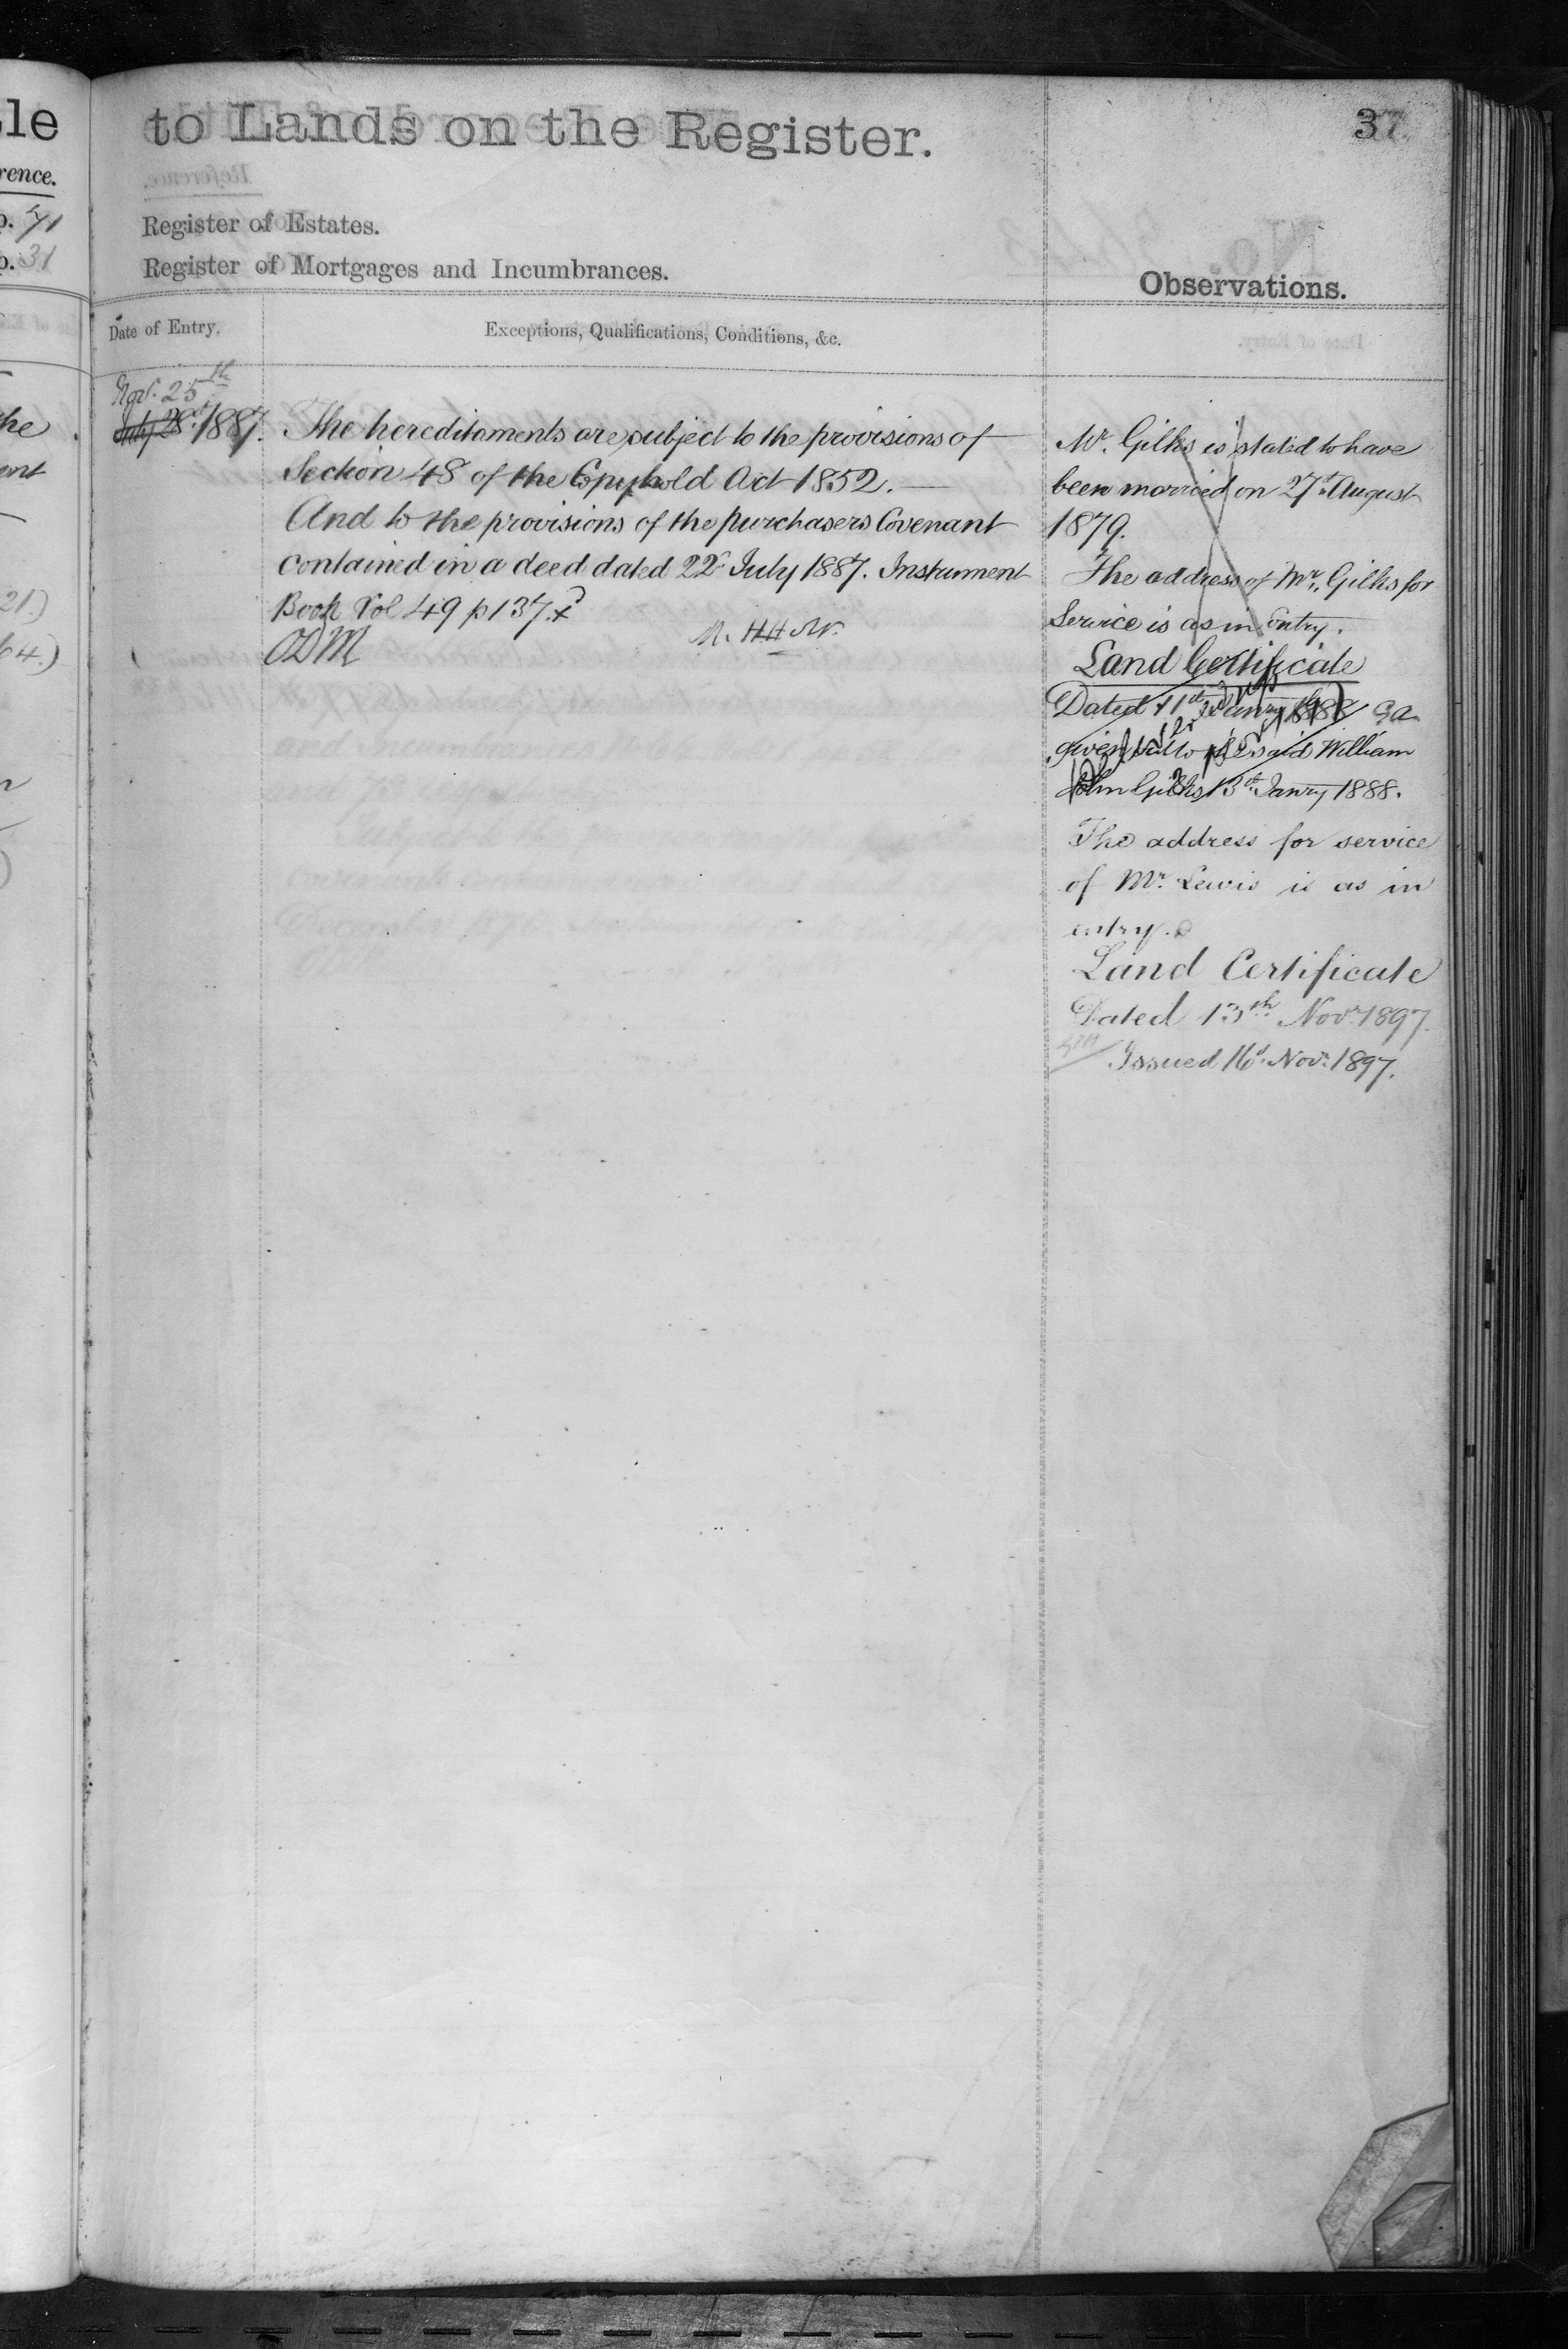 le
rence.
p. 71
p. 31
he
ent
21.)
64.)
to Lands on the Register.
37
Register of Estates.
Register of Mortgages and Incumbrances.
Observations.
Date of Entry.
Exceptions, Qualifications, Conditions, &c.
Novr. 25th
July 28th 1887.
The hereditaments are subject to the provisions of
Section 48 of the Copyhold Act 1852.
And to the provisions of the purchasers Covenant
contained in a deed dated 22d July 1887. Instrument
Book Vol 49 p 137.
ODM
Mr. Gilks is stated to have
been married on 27th August
1879.
The address of Mr. Gilks for
Service is as in Entry.
Land Certificate
Dated 11th Janry 1888
given out to said William
John Gilks 13th Janry 1888.
The address for service
of Mr. Lewis is as in
entry.
Land Certificate
Dated 13th Novr. 1897.
Issued 16th Novr. 1897.